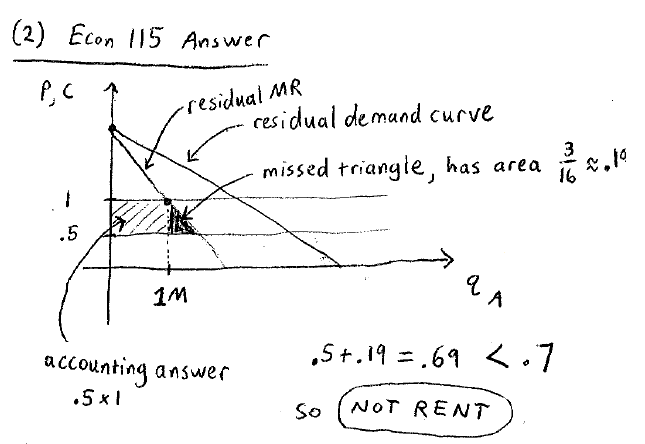 (2) Econ 115 Answer
P, C
residual MR
residual demand curve
missed triangle, has area 3/16 ≈ .19
1
.5
1M
q A
accounting answer
.5 × 1
.5 + .19 = .69 < .7
so NOT RENT